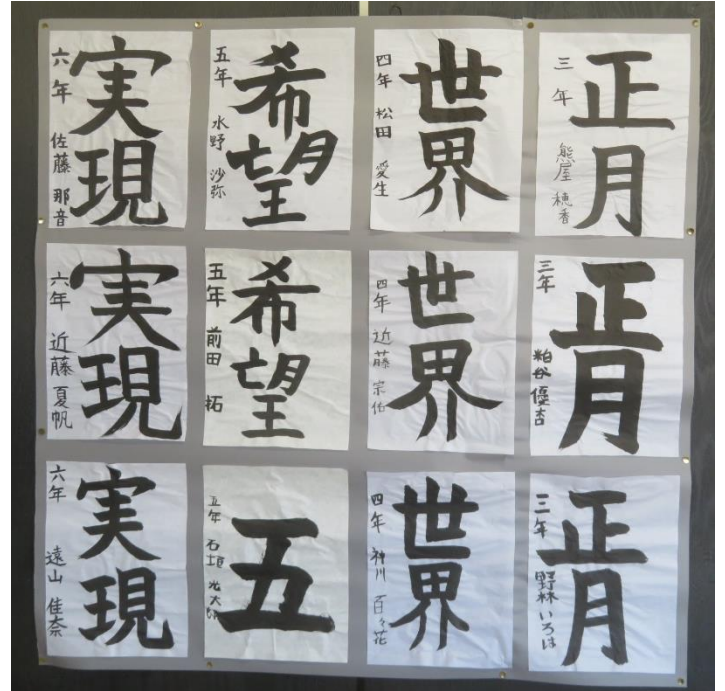 正月
三年 熊屋 穂香
世界
四年 松田 愛生
希望
五年 水野 沙弥
実現
六年 佐藤 那音
正月
三年 粕谷 優杏
世界
四年 近藤 宗佑
希望
五年 前田 拓
実現
六年 近藤 夏帆
正月
三年 野林 いろは
世界
四年 神川 百々花
五
五年 石垣 光太郎
実現
六年 遠山 佳奈